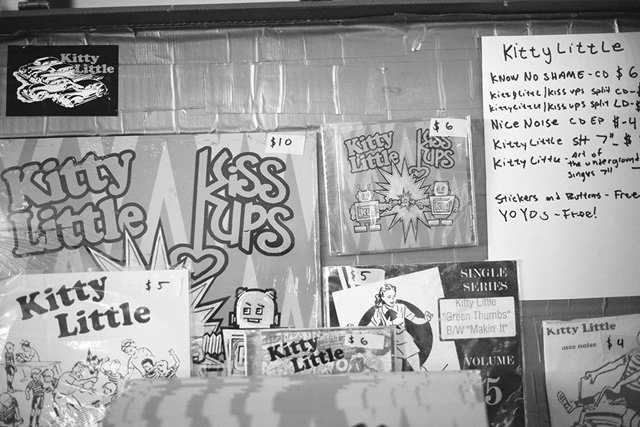 Kitty
Little
Kitty Little
KNOW NO SHAME - CD $6
Kitty Little/kiss ups split CD - $
Kitty Little/kiss ups split LP - $
NICE NOISE CD EP $-4
Kitty Little SH 7" - $
Kitty Little - Art of
the underground
singles 7"
Stickers and Buttons - Free
YOYOs - Free!
$10
Kitty
Little
KISS
UPS
$6
Kitty
Little
KISS
UPS
$5
Kitty
Little
$5
SINGLE
SERIES
Kitty Little
"Green Thumbs"
B/W "Makin' It"
VOLUME
5
$6
Kitty
Little
Kitty Little
nice noise
$4